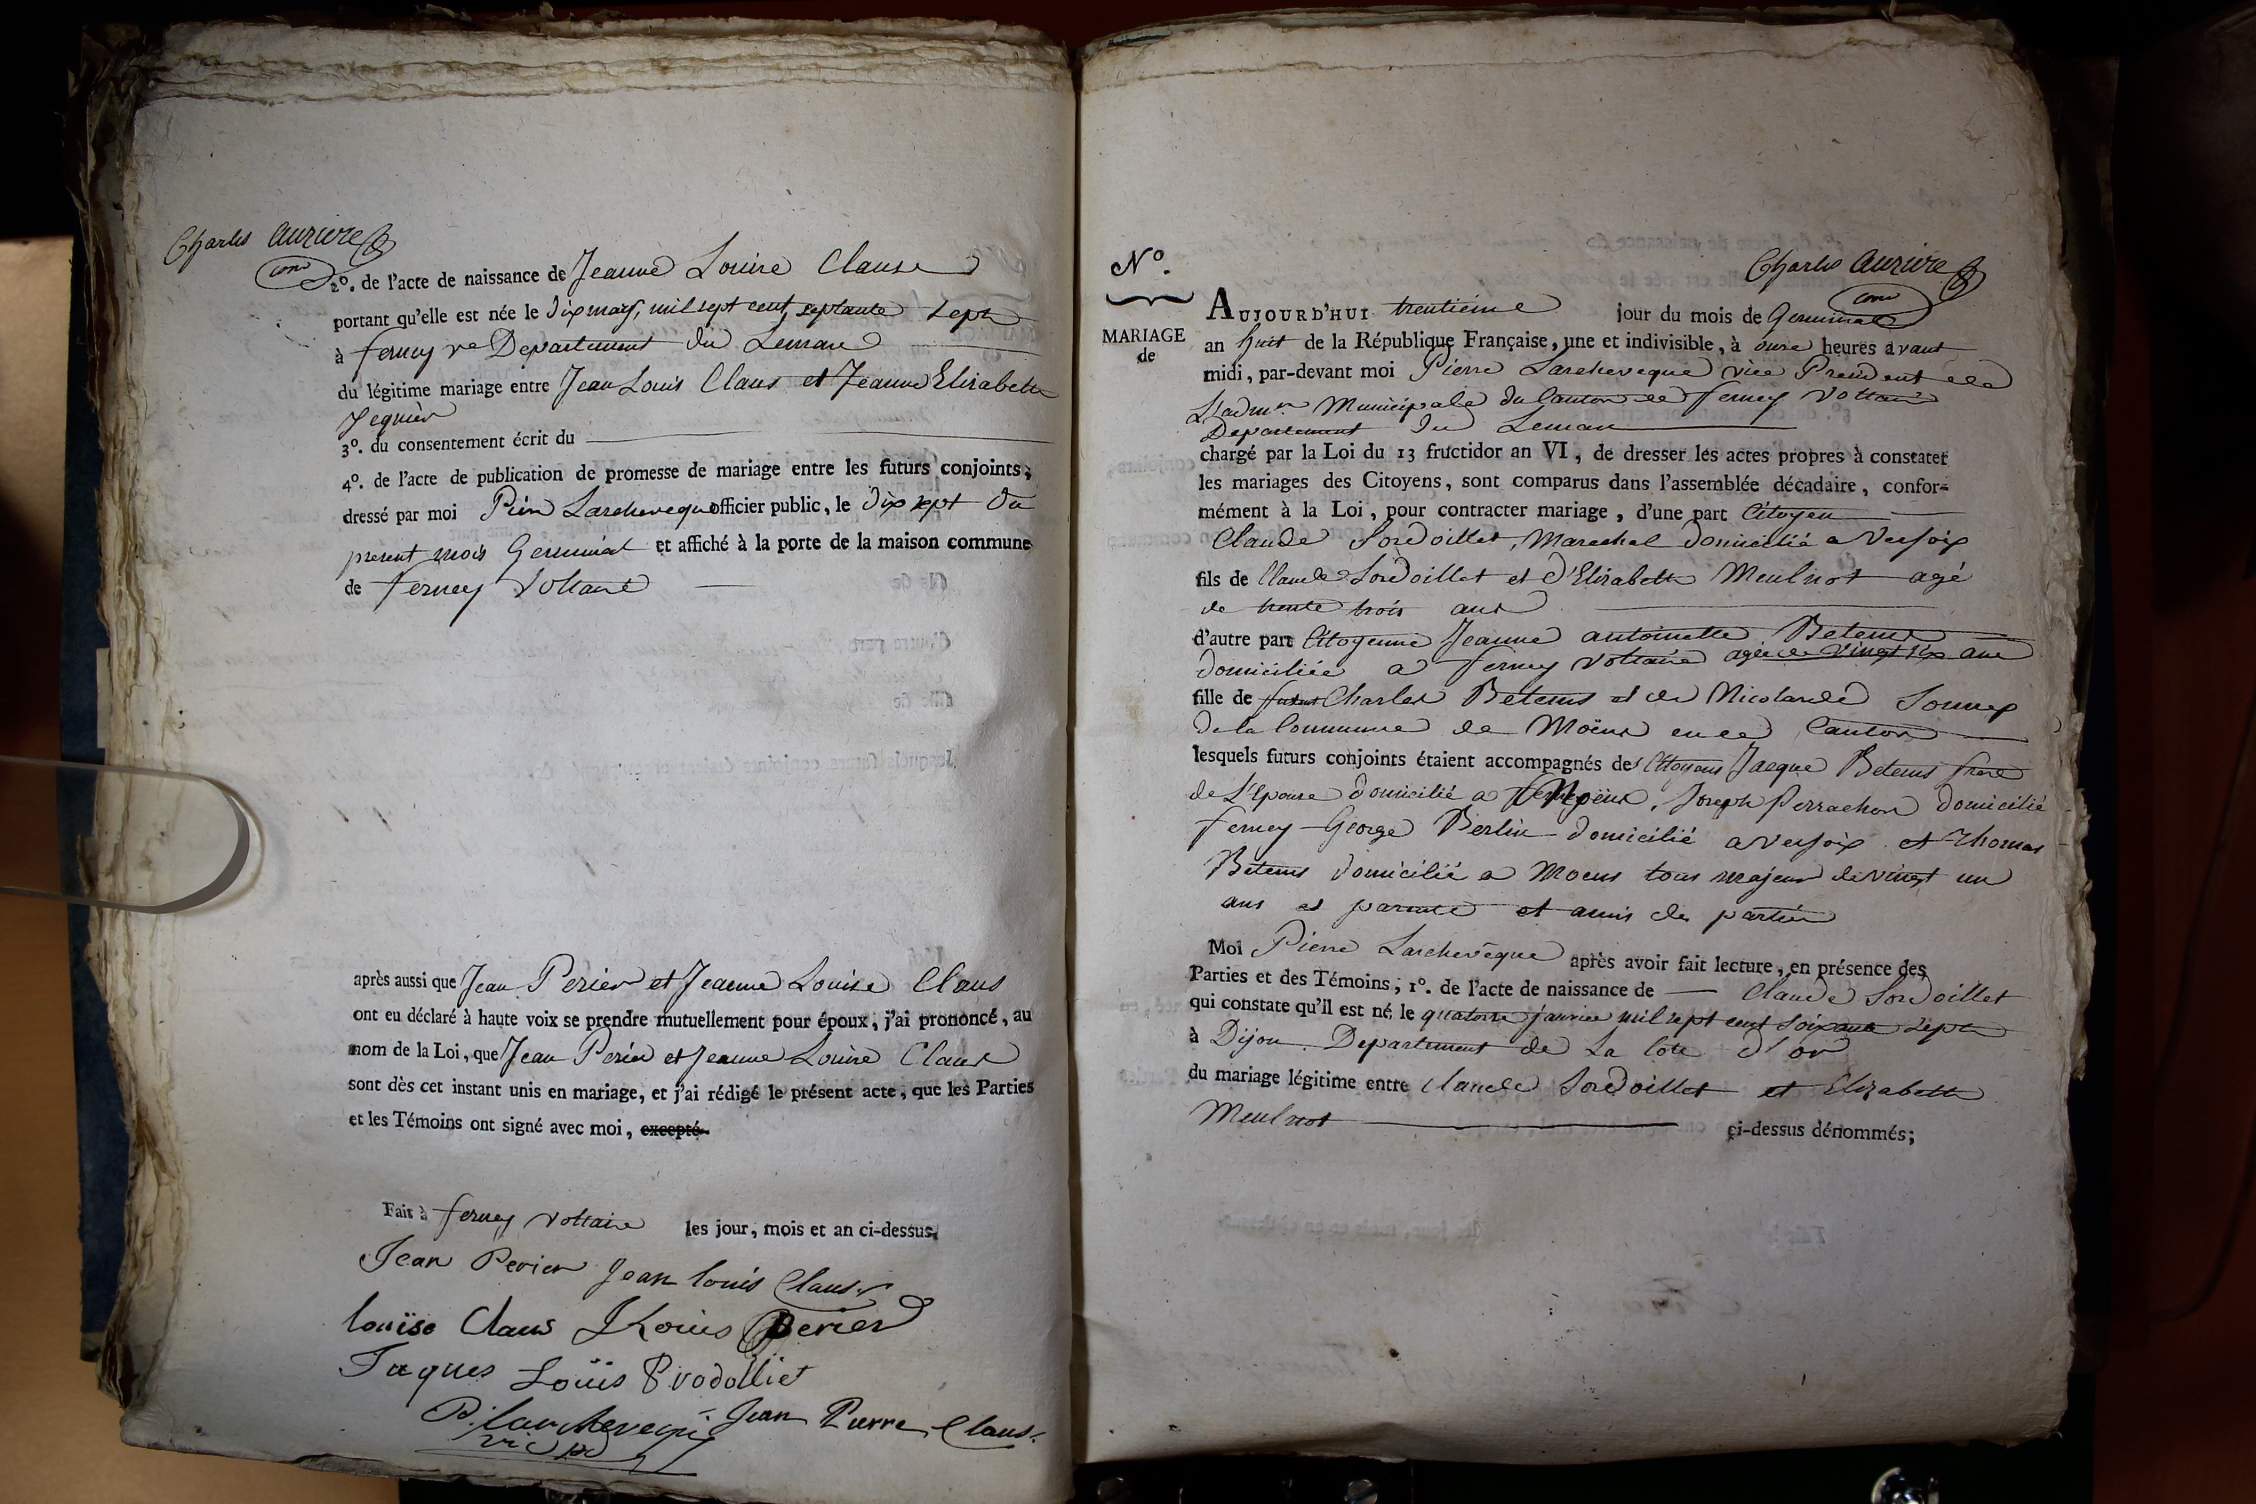 Charles auzière
com
2º. de l'acte de naissance de Jeanne Louise Clause
portant qu'elle est née le dix mars, mil sept cent septante sept
à ferney vre Departement du Leman
du légitime mariage entre Jean Louis Claus et Jeanne Elisabeth
Jequier
3º. du consentement écrit du
4º. de l'acte de publication de promesse de mariage entre les futurs conjoints;
dressé par moi Pierre Larcheveque officier public, le dix sept du
present mois Germinal et affiché à la porte de la maison commune
de ferney Voltaire
après aussi que Jean Perier et Jeanne Louise Claus
ont eu déclaré à haute voix se prendre mutuellement pour époux, j'ai prononcé, au
nom de la Loi, que Jean Perier et Jeanne Louise Claus
sont dès cet instant unis en mariage, et j'ai rédigé le présent acte, que les Parties
et les Témoins ont signé avec moi, excepté
Fait à ferney Voltaire les jour, mois et an ci-dessus.
Jean Perier Jean louis Claus
louise Claus J Louis Perier
Jaques Louïs Prodolliet
P. Larcheveque Jean Pierre Claus
Nº.
Charles auzière
com
MARIAGE
de
AUJOURD'HUI trentieme jour du mois de Germinal
an huit de la République Française, une et indivisible, à onze heures avant
midi, par-devant moi Pierre Larcheveque vice President de
L'admon Municipale du Canton de ferney Voltaire
Departement du Leman
chargé par la Loi du 13 fructidor an VI, de dresser les actes propres à constater
les mariages des Citoyens, sont comparus dans l'assemblée décadaire, confor-
mément à la Loi, pour contracter mariage, d'une part Citoyen
Claude Sordoillet, Marechal domicilié a Versoix
fils de Claude Sordoillet et d'Elisabeth Meulnot agé
de trente trois ans
d'autre part Citoyenne Jeanne antoinette Betems
domiciliée a ferney Voltaire agée de vingt six ans
fille de Charles Betems et de Nicolarde
de la Commune de Moëns en ce Canton
lesquels futurs conjoints étaient accompagnés de Citoyens Jacque Betems frere
de L'Epouse domicilié a Moëns, Joseph Perrachon domicilié
ferney George Berlin domicilié a Versoix et Thomas
Betems domicilié a Moens tous majeurs de vingt un
ans et parents et amis des parties
Moi Pierre Larchevêque après avoir fait lecture, en présence des
Parties et des Témoins; 1º. de l'acte de naissance de Claude Sordoillet
qui constate qu'il est né le quatorze janvier mil sept cent soixante sept
à Dijon Departement de La Côte d'or
du mariage légitime entre Claude Sordoillet et Elizabeth
Meulnot ci-dessus dénommés;